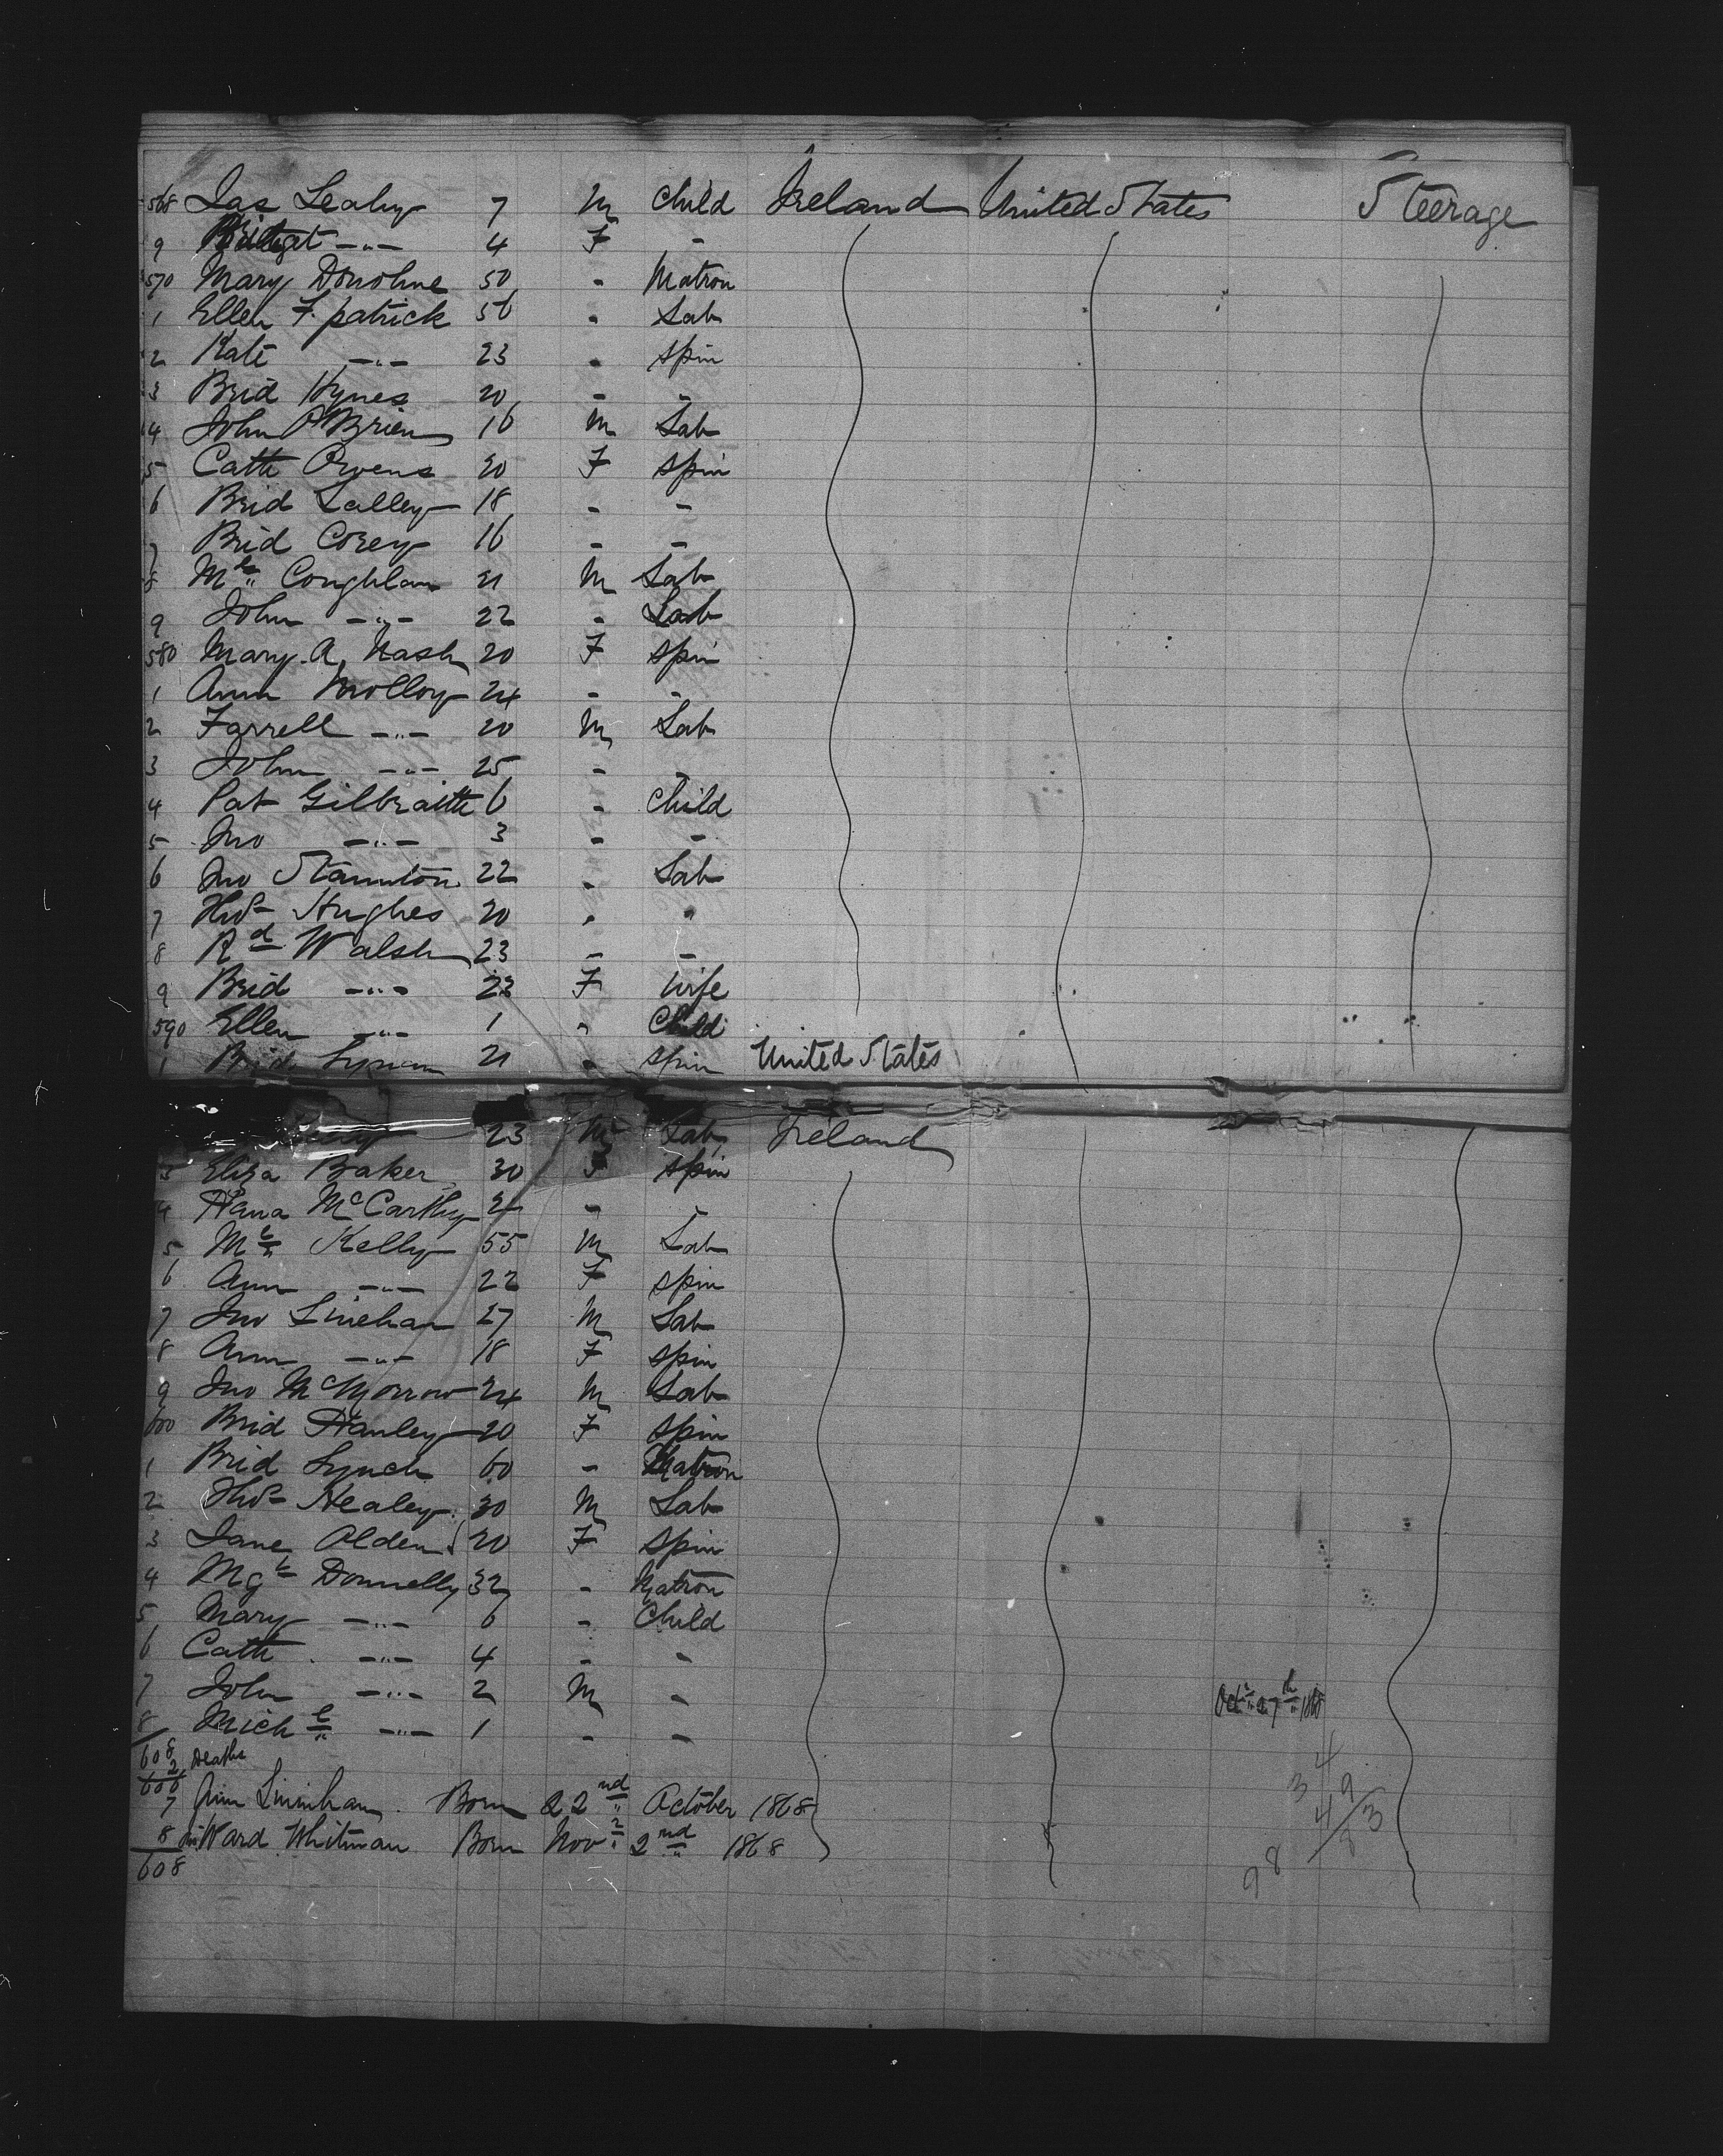 568 Jas Leahy 7 M Child Ireland United States Steerage
9 Bridget -"- 4 F -
570 Mary Donohue 50 - Matron
1 Ellen F.patrick 56 - Lab
2 Kate -"- 23 - Spin
3 Brid Hynes 20 - -
4 John O'Brien 16 M Lab
5 Cath Owens 20 F Spin
6 Brid Lalley 18 - -
7 Brid Corey 16 - -
8 Ml Coughlan 21 M Lab
9 John -"- 22 - Lab
580 Mary A. Nash 20 F Spin
1 Ann Molloy 24 - -
2 Farrell -"- 20 M Lab
3 John -"- 25 - -
4 Pat Gilbraith 6 - Child
5 Jno -"- 3 - -
6 Jno Stannton 22 - Lab
7 Thos Hughes 20 " "
8 Rd Walsh 23 - -
9 Brid -"- 23 F Wife
590 Ellen -"- 1 " Child
1 Brid Lyman 21 - Spin United States
23 M Lab Ireland
3 Eliza Baker 30 F Spin
4 Hana McCarthy 2 - -
5 Ml Kelly 55 M Lab
6 Ann -"- 22 F Spin
7 Jno Linehan 27 M Lab
8 Ann -"- 18 F Spin
9 Jno McMorrow 24 M Lab
600 Brid Hanley 20 F Spin
1 Brid Lynch 60 - Matron
2 Thos Healey 30 M Lab
3 Jane Alden 20 F Spin
4 Mgt Donnelly 32 - Matron
5 Mary -"- 6 - Child
6 Cath -"- 4 - -
7 John -"- 2 M -
8 Michl -"- 1 - -
Oct 27th 1868
608
2 Deaths
606
7 Linnihan Born 22nd October 1868
8 Ward Whitman Born Nov 2nd 1868
608
4
3 9
4/3
98